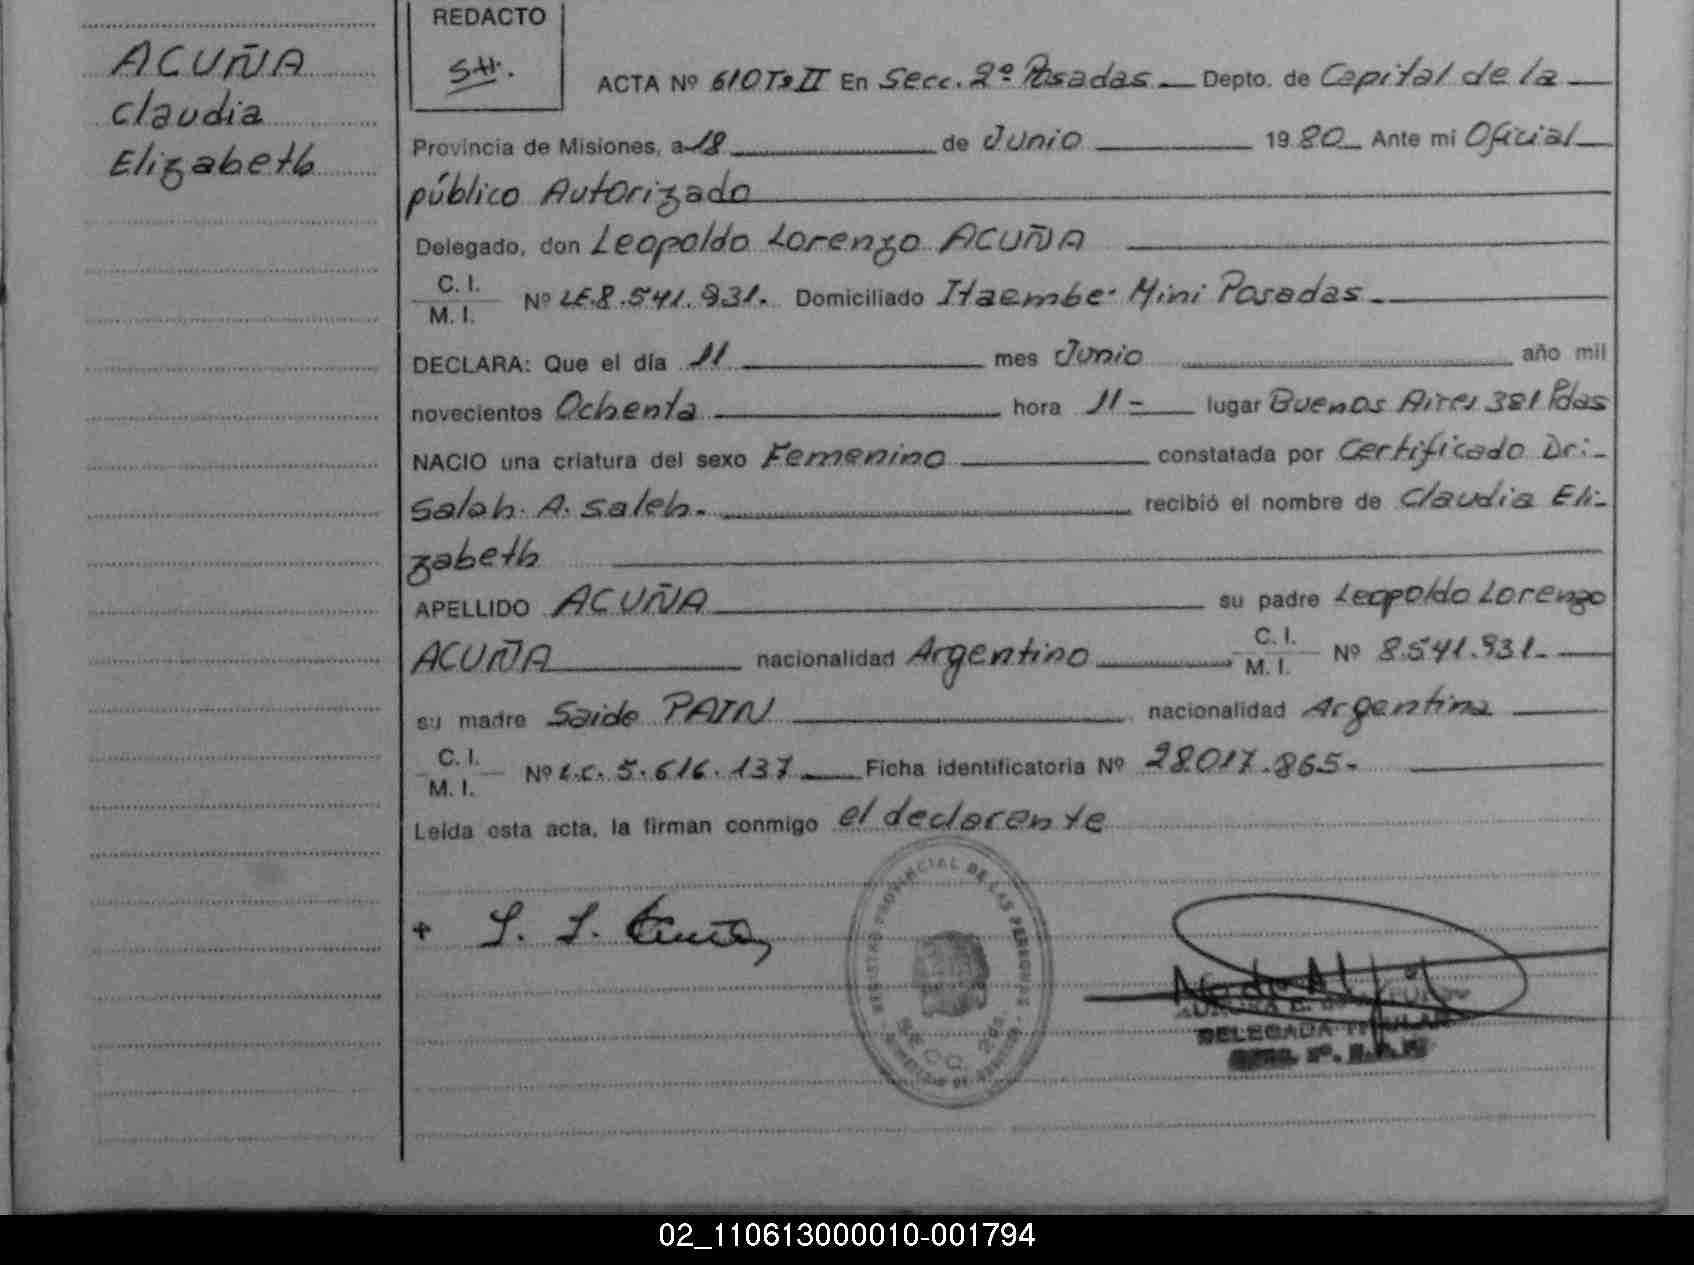 ACUÑA
Claudia
Elizabeth
REDACTO
S.H.
ACTA Nº 610 Tº II En Secc. 2º Posadas Depto. de Capital de la
Provincia de Misiones, a 18 de Junio 1980 Ante mi Oficial
público Autorizado
Delegado, don Leopoldo Lorenzo ACUÑA
C. I.
M. I. Nº LE.8.541.931. Domiciliado Itaembe Mini Posadas
DECLARA: Que el día 11 mes Junio año mil
novecientos Ochenta hora 11- lugar Buenos Aires 381 Pdas
NACIO una criatura del sexo Femenino constatada por Certificado Dr:
Salah. A. Saleh. recibió el nombre de Claudia Eli-
zabeth
APELLIDO ACUÑA su padre Leopoldo Lorenzo
ACUÑA nacionalidad Argentino C. I. M. I. Nº 8.541.931.
su madre Saide PAIN nacionalidad Argentina
C. I.
M. I. Nº L.C. 5.616.137 Ficha identificatoria Nº 28017.865-
Leída esta acta, la firman conmigo el declarente
REGISTRO PROVINCIAL DE LAS PERSONAS
SECC. 2da.
DELEGADA TITULAR
02_110613000010-001794